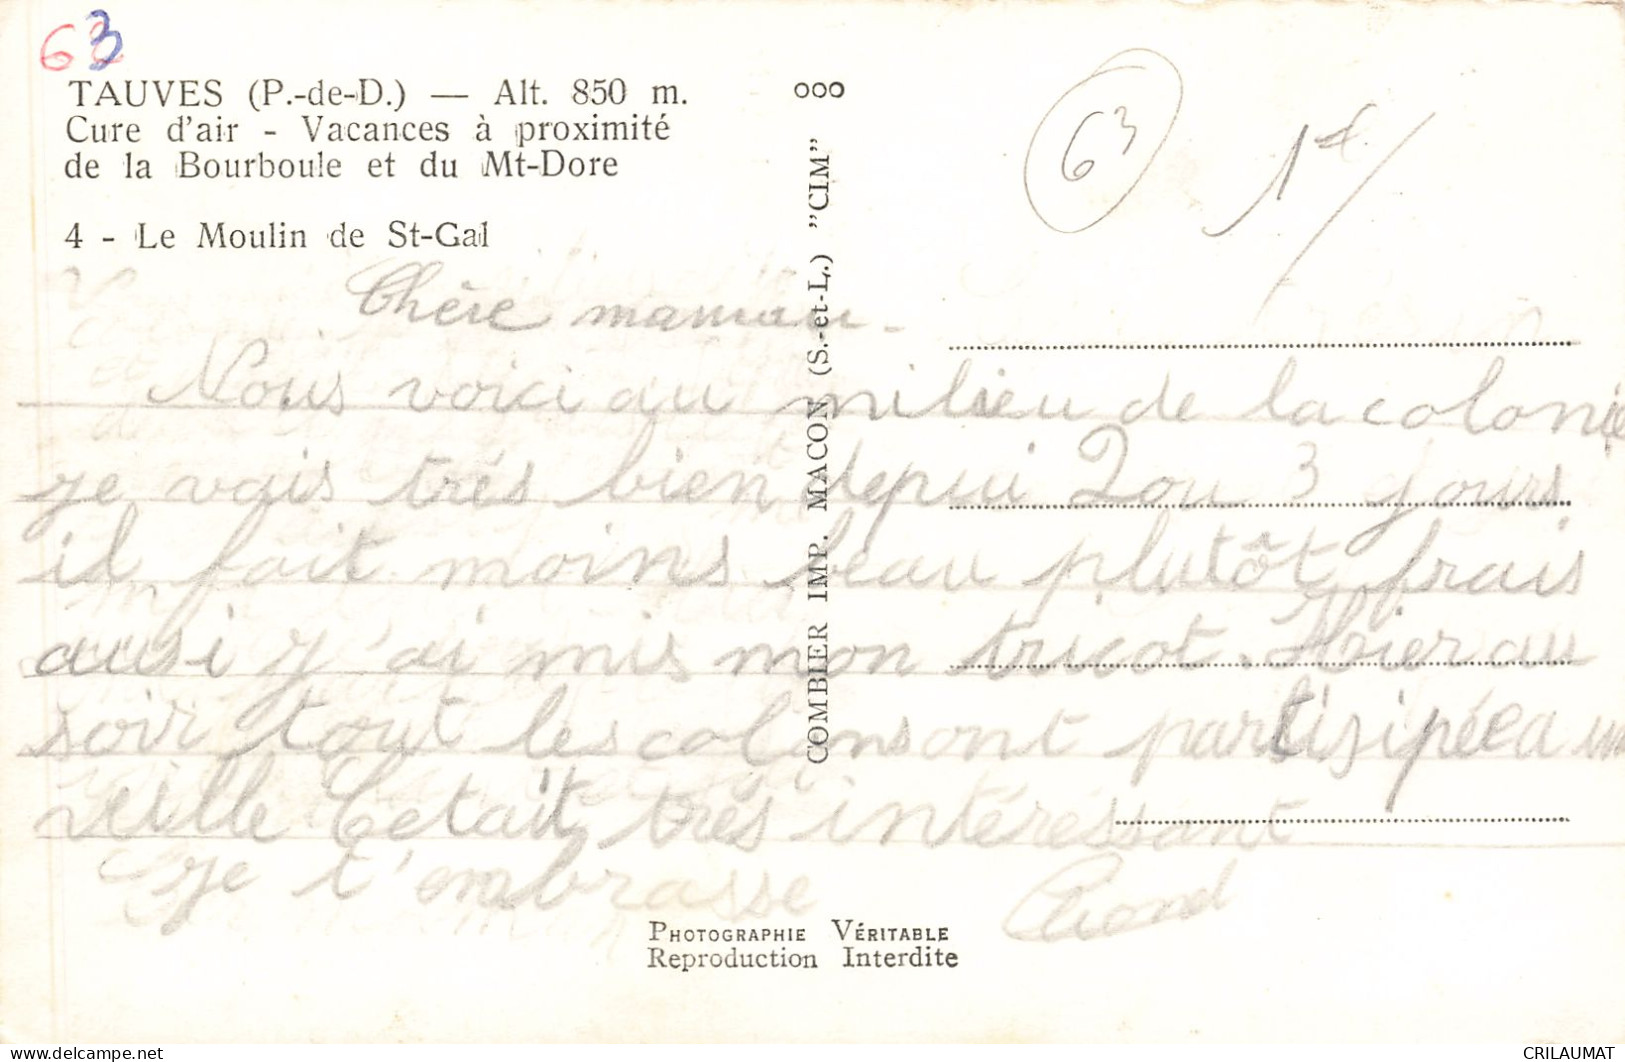 63
TAUVES (P.-de-D.) — Alt. 850 m.
Cure d'air - Vacances à proximité
de la Bourboule et du Mt-Dore
4 - Le Moulin de St-Gal
ooo
63
1€
COMBIER IMP. MACON (S.-et-L.) "CIM"
Chère maman -
Nous voici au milieu de la colonie
je vais trés bien depui 2 ou 3 jours
il fait moins beau plutôt frais
ausi j'ai mis mon tricot. Hier au
soir tout les colons ont partisipéea une
veille C'etait trés intéréssant
je t'embrasse
PHOTOGRAPHIE VÉRITABLE
Reproduction Interdite
delcampe.net
CRILAUMAT